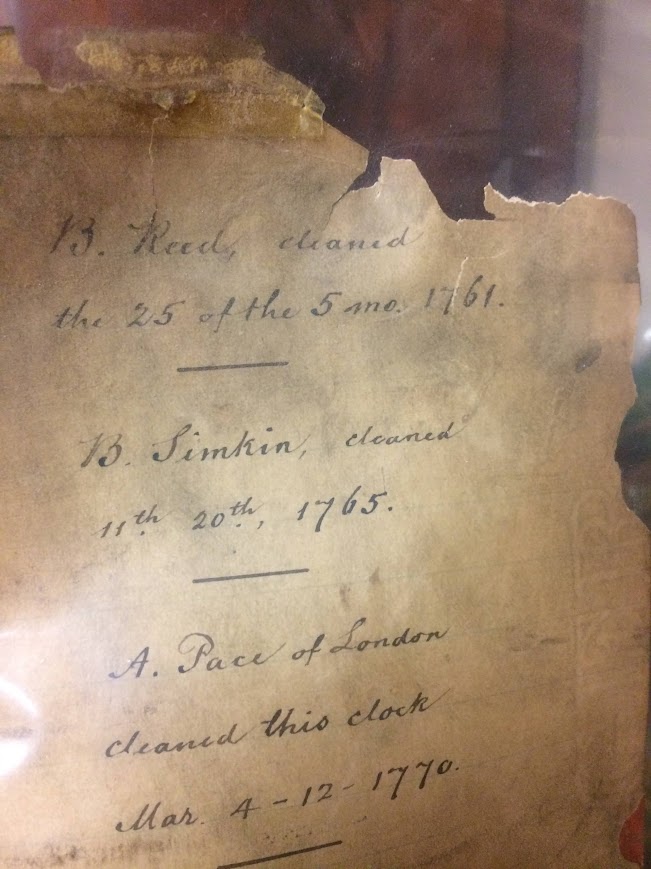 B. Reed, cleaned
the 25 of the 5 mo. 1761.
B. Simkin, cleaned
11th 20th, 1765.
A. Pace of London
cleaned this clock
Mar. 4-12-1770.